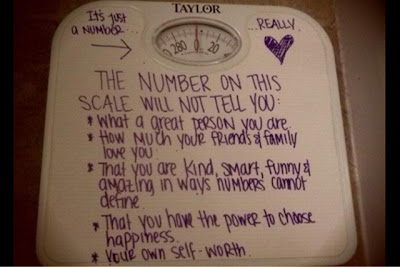 It's just
a number...
TAYLOR
...REALLY.
280 0 20
THE NUMBER ON THIS
SCALE WILL NOT TELL YOU:
* What a great PERSON you are.
* How much your friends & family
love you.
* That you are kind, smart, funny &
amazing in ways numbers cannot
define.
* That you have the power to choose
happiness.
* Your own self-worth.